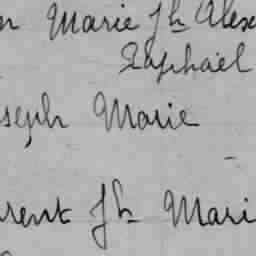 n Marie Jh Alex
Raphael
seph Marie
rent Jh Mari